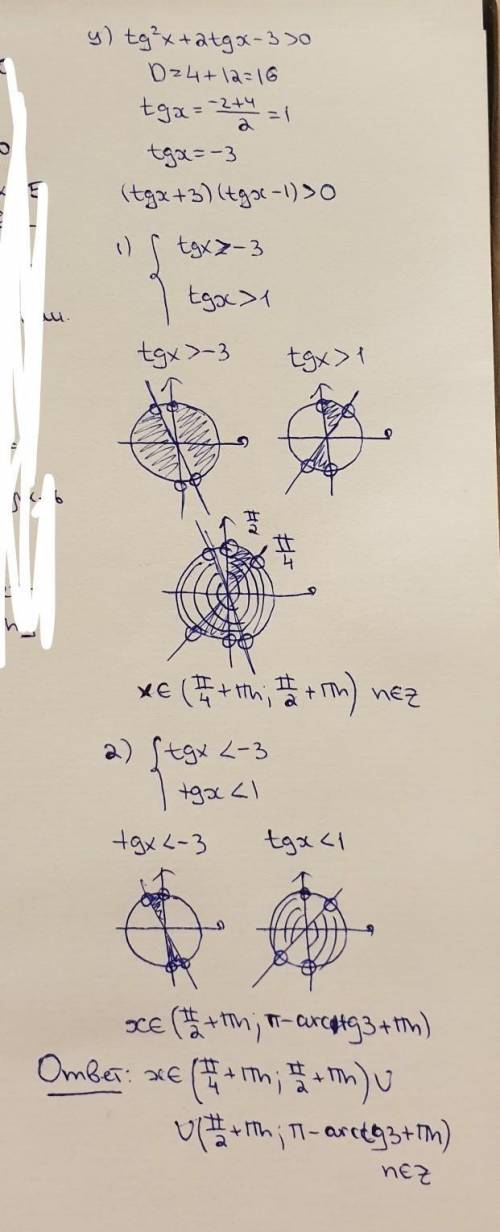 4) tg²x+2tgx-3>0
D=4+12=16
tgx=(-2+4)/2=1
tgx=-3
(tgx+3)(tgx-1)>0
1) { tgx>-3
tgx>1
tgx>-3 tgx>1
π/2
π/4
x∈(π/4+πn; π/2+πn) n∈z
2) { tgx<-3
tgx<1
tgx<-3 tgx<1
x∈(π/2+πn; π-arctg3+πn)
Ответ: x∈(π/4+πn; π/2+πn)∪
∪(π/2+πn; π-arctg3+πn)
n∈z